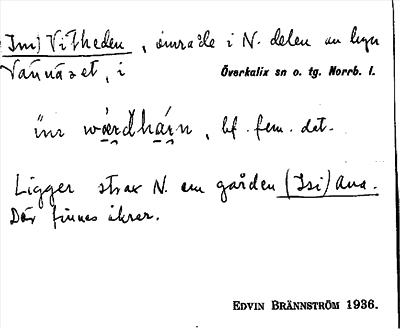 (Im) Vitheden, område i N. delen av byn
Vännäset, i Överkalix sn o. tg. Norrb. l.
bf. fem. det.
Ligger strax N. om gården (Isi) Ana.
Där finnes åkrar.
EDVIN BRÄNNSTRÖM 1936.